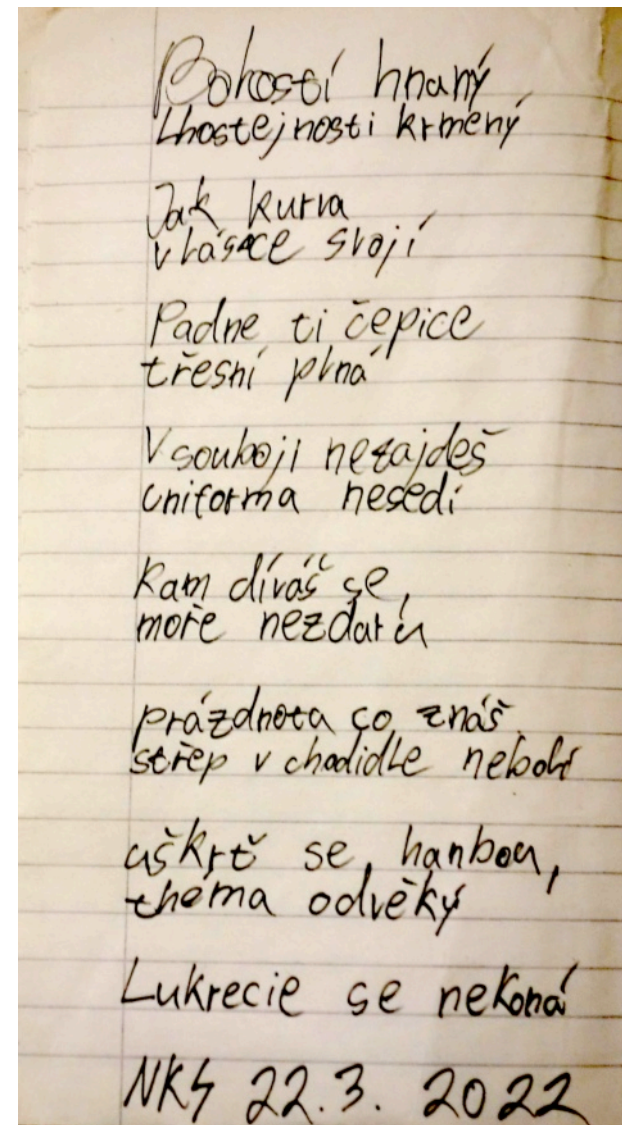 Bolostí hnaný
Lhostejnosti krmený
Jak kurva
vlásace svojí
Padne ti čepice
třešní plná
V souboji nezajdeš
uniforma nesedí
Kam díváš se,
moře nezdarů
prázdnota co znáš
střep v chodidle nebolí
uškrť se, hanbou,
théma odvěký
Lukrecie se nekoná
NKS 22.3. 2022